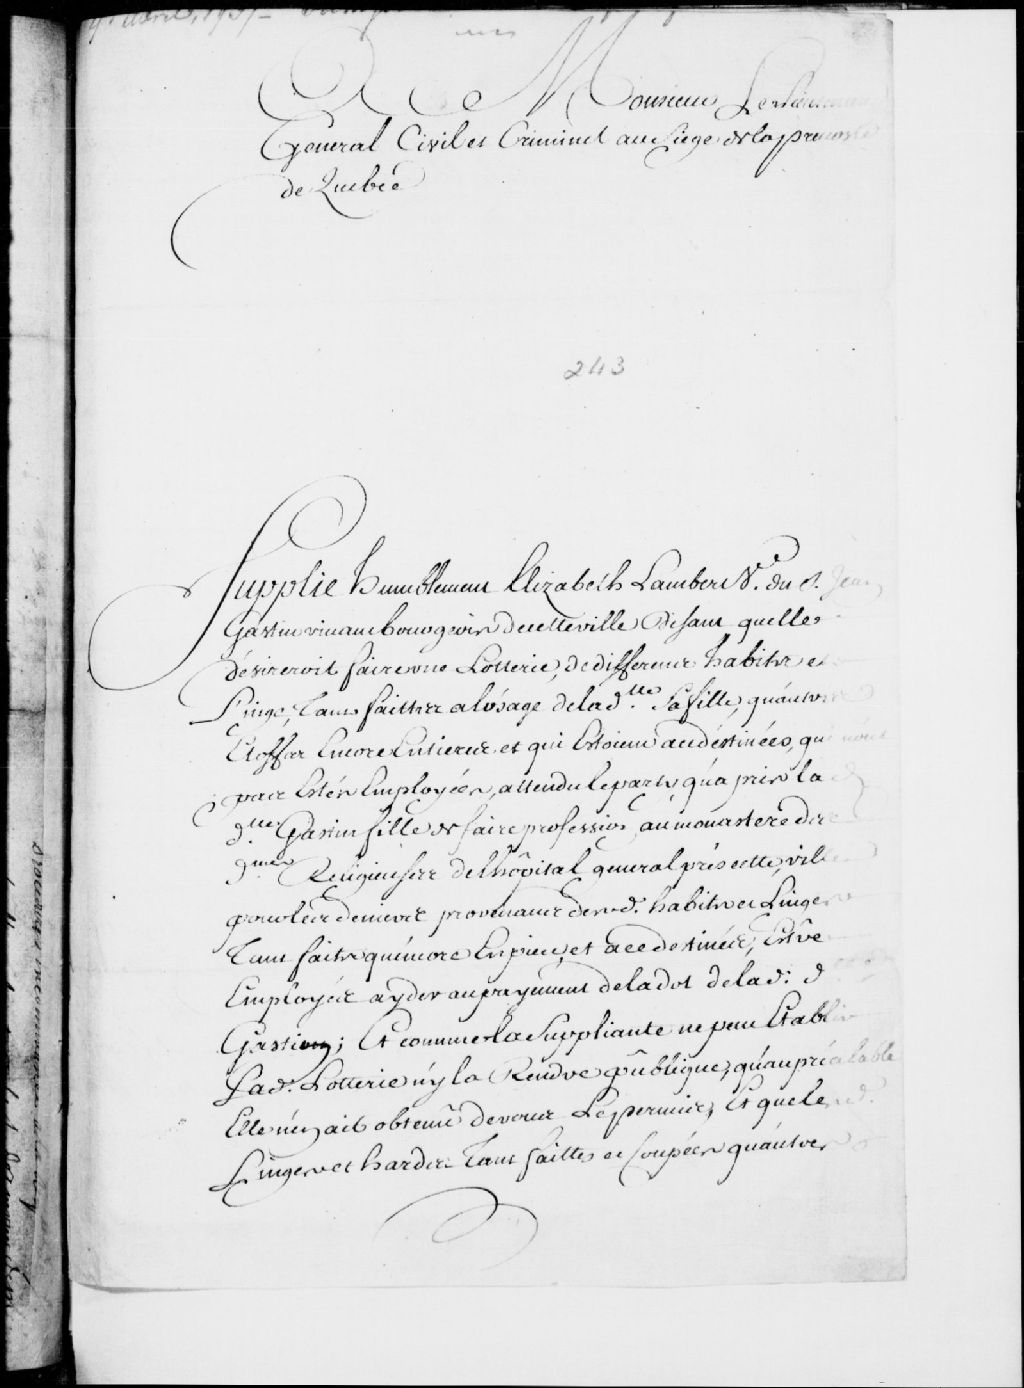 A Monsieur Le Lieutenant
General Civil et Criminel au Siege de la prevosté
de Quebec
243
Supplie humblement Elizabeth Lambert Ve. du S. Jean
Gastin vivant bourgeois de cette ville Disant quelle
désireroit faire une Lotterie, de different habits et
Linge, Tant faittes a l'usage de lad. lle Sa fille, quautres
Etoffes Encore Entieres et qui Estoient a ce déstinées, qui n'ont
pas Estés Employées, attendu le party qua pris la
d. lle Gastin fille de faire profession au monastere des
d. mes Religieuses de l'hôpital general prés cette ville
pour les deniers provenant desd. habits et Linges
Tant faits quencore En piece, et a ce destinées, Estre
Employés ayder au payement de la dot de lad. d
Gastin; Et comme la Suppliante ne peut Etablir
Lad. Lotterie ny la Rendre publique, quau préalable
Elle n'en ait obtenu de vous Le permis, Et que les d.
Linges et hardes Tant faittes et Coupées quautres